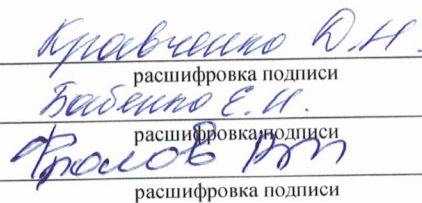 Кравченко Д.Н.
расшифровка подписи
Бабенко Е.Н.
расшифровка подписи
Фролов
расшифровка подписи